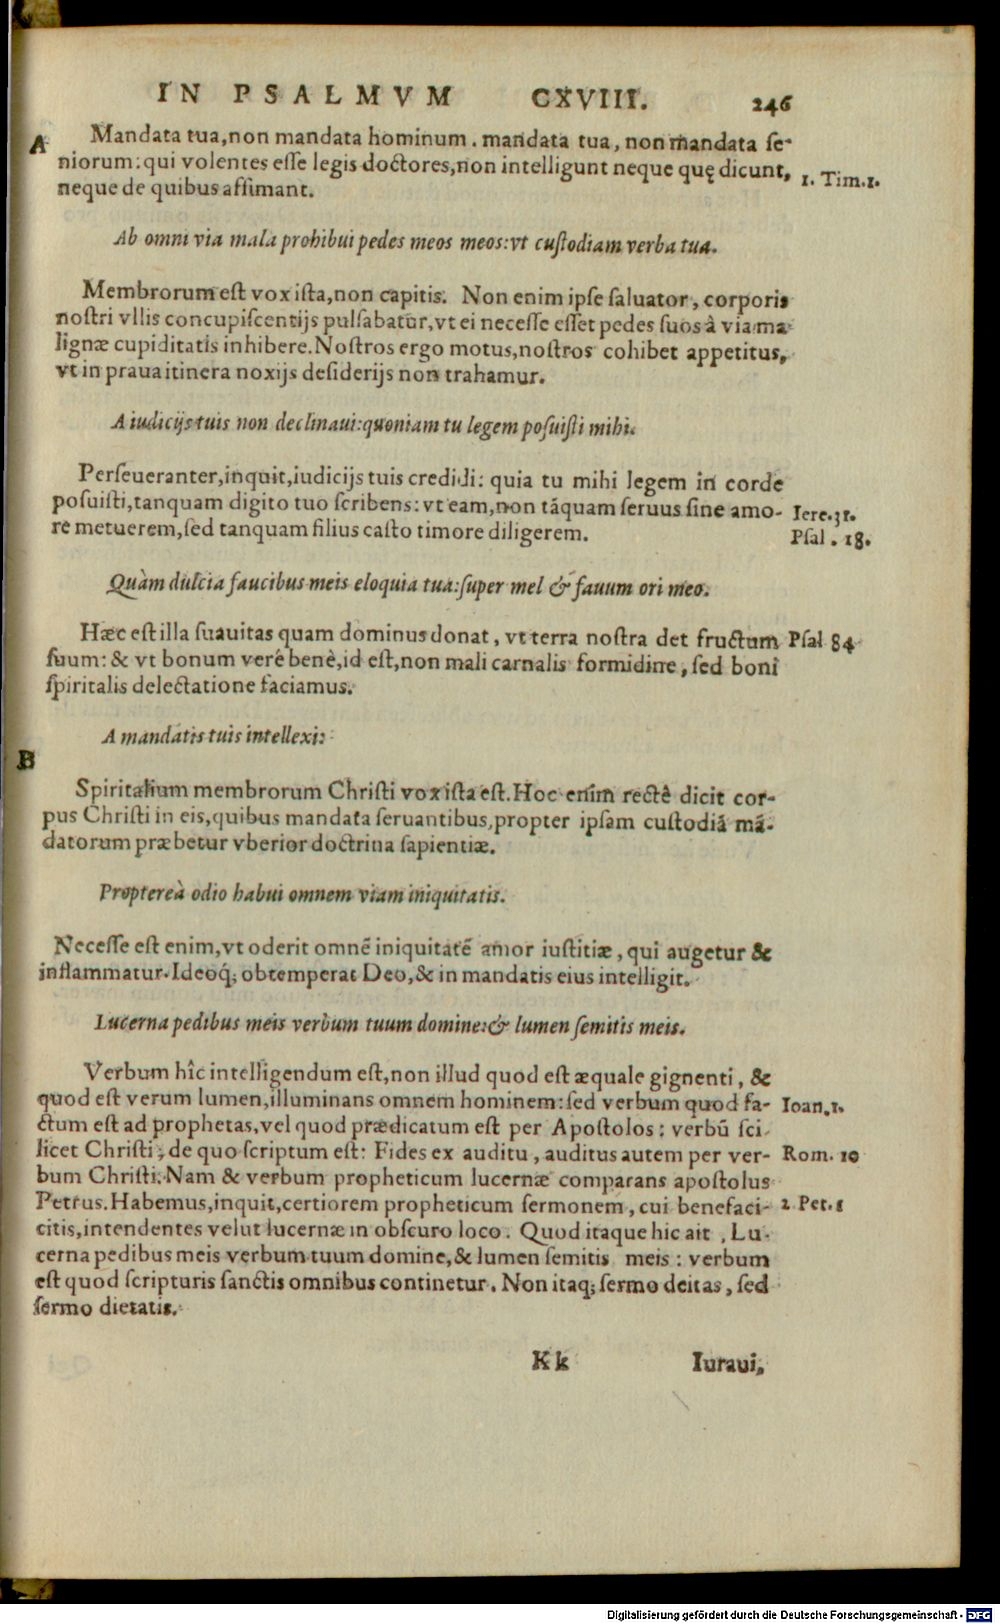 IN PSALMVM CXVIII. 246
A Mandata tua,non mandata hominum. mandata tua, non mandata ſe-
niorum:qui volentes eſſe legis doctores,non intelligunt neque quę dicunt, 1. Tim.1.
neque de quibus affimant.
Ab omni via mala prohibui pedes meos meos:vt cuſtodiam verba tua.
Membrorum eſt vox iſta,non capitis. Non enim ipſe ſaluator, corporis
noſtri vllis concupiſcentijs pulſabatur,vt ei neceſſe eſſet pedes ſuos à via ma-
lignæ cupiditatis inhibere.Noſtros ergo motus,noſtros cohibet appetitus,
vt in praua itinera noxijs deſiderijs non trahamur.
A iudicijs tuis non declinaui:quoniam tu legem poſuiſti mihi.
Perſeueranter,inquit,iudicijs tuis credidi: quia tu mihi legem in corde
poſuiſti,tanquam digito tuo ſcribens: vt eam,non tāquam ſeruus ſine amo- Iere.31.
re metuerem,ſed tanquam filius caſto timore diligerem. Pſal. 18.
Quàm dulcia faucibus meis eloquia tua:ſuper mel & fauum ori meo.
Hæc eſt illa ſuauitas quam dominus donat, vt terra noſtra det fructum Pſal 84
ſuum: & vt bonum verè benè,id eſt,non mali carnalis formidine, ſed boni
ſpiritalis delectatione faciamus.
A mandatis tuis intellexi:
B
Spiritalium membrorum Chriſti vox iſta eſt.Hoc enim rectè dicit cor-
pus Chriſti in eis,quibus mandata ſeruantibus,propter ipſam cuſtodiā mā-
datorum præbetur vberior doctrina ſapientiæ.
Proptereà odio habui omnem viam iniquitatis.
Neceſſe eſt enim,vt oderit omnē iniquitatē amor iuſtitiæ, qui augetur &
inflammatur.Ideoq; obtemperat Deo,& in mandatis eius intelligit.
Lucerna pedibus meis verbum tuum domine:& lumen ſemitis meis.
Verbum hîc intelligendum eſt,non illud quod eſt æquale gignenti, &
quod eſt verum lumen,illuminans omnem hominem:ſed verbum quod fa- Ioan.1.
ctum eſt ad prophetas,vel quod prædicatum eſt per Apoſtolos: verbū ſci-
licet Chriſti, de quo ſcriptum eſt: Fides ex auditu, auditus autem per ver- Rom. 10
bum Chriſti. Nam & verbum propheticum lucernæ comparans apoſtolus
Petrus.Habemus,inquit,certiorem propheticum ſermonem, cui benefaci- 2 Pet.1
citis,intendentes velut lucernæ in obſcuro loco. Quod itaque hic ait, Lu-
cerna pedibus meis verbum tuum domine,& lumen ſemitis meis: verbum
eſt quod ſcripturis ſanctis omnibus continetur. Non itaq; ſermo deitas, ſed
ſermo dietatis.
Kk Iuraui,
Digitalisierung gefördert durch die Deutsche Forschungsgemeinschaft - DFG